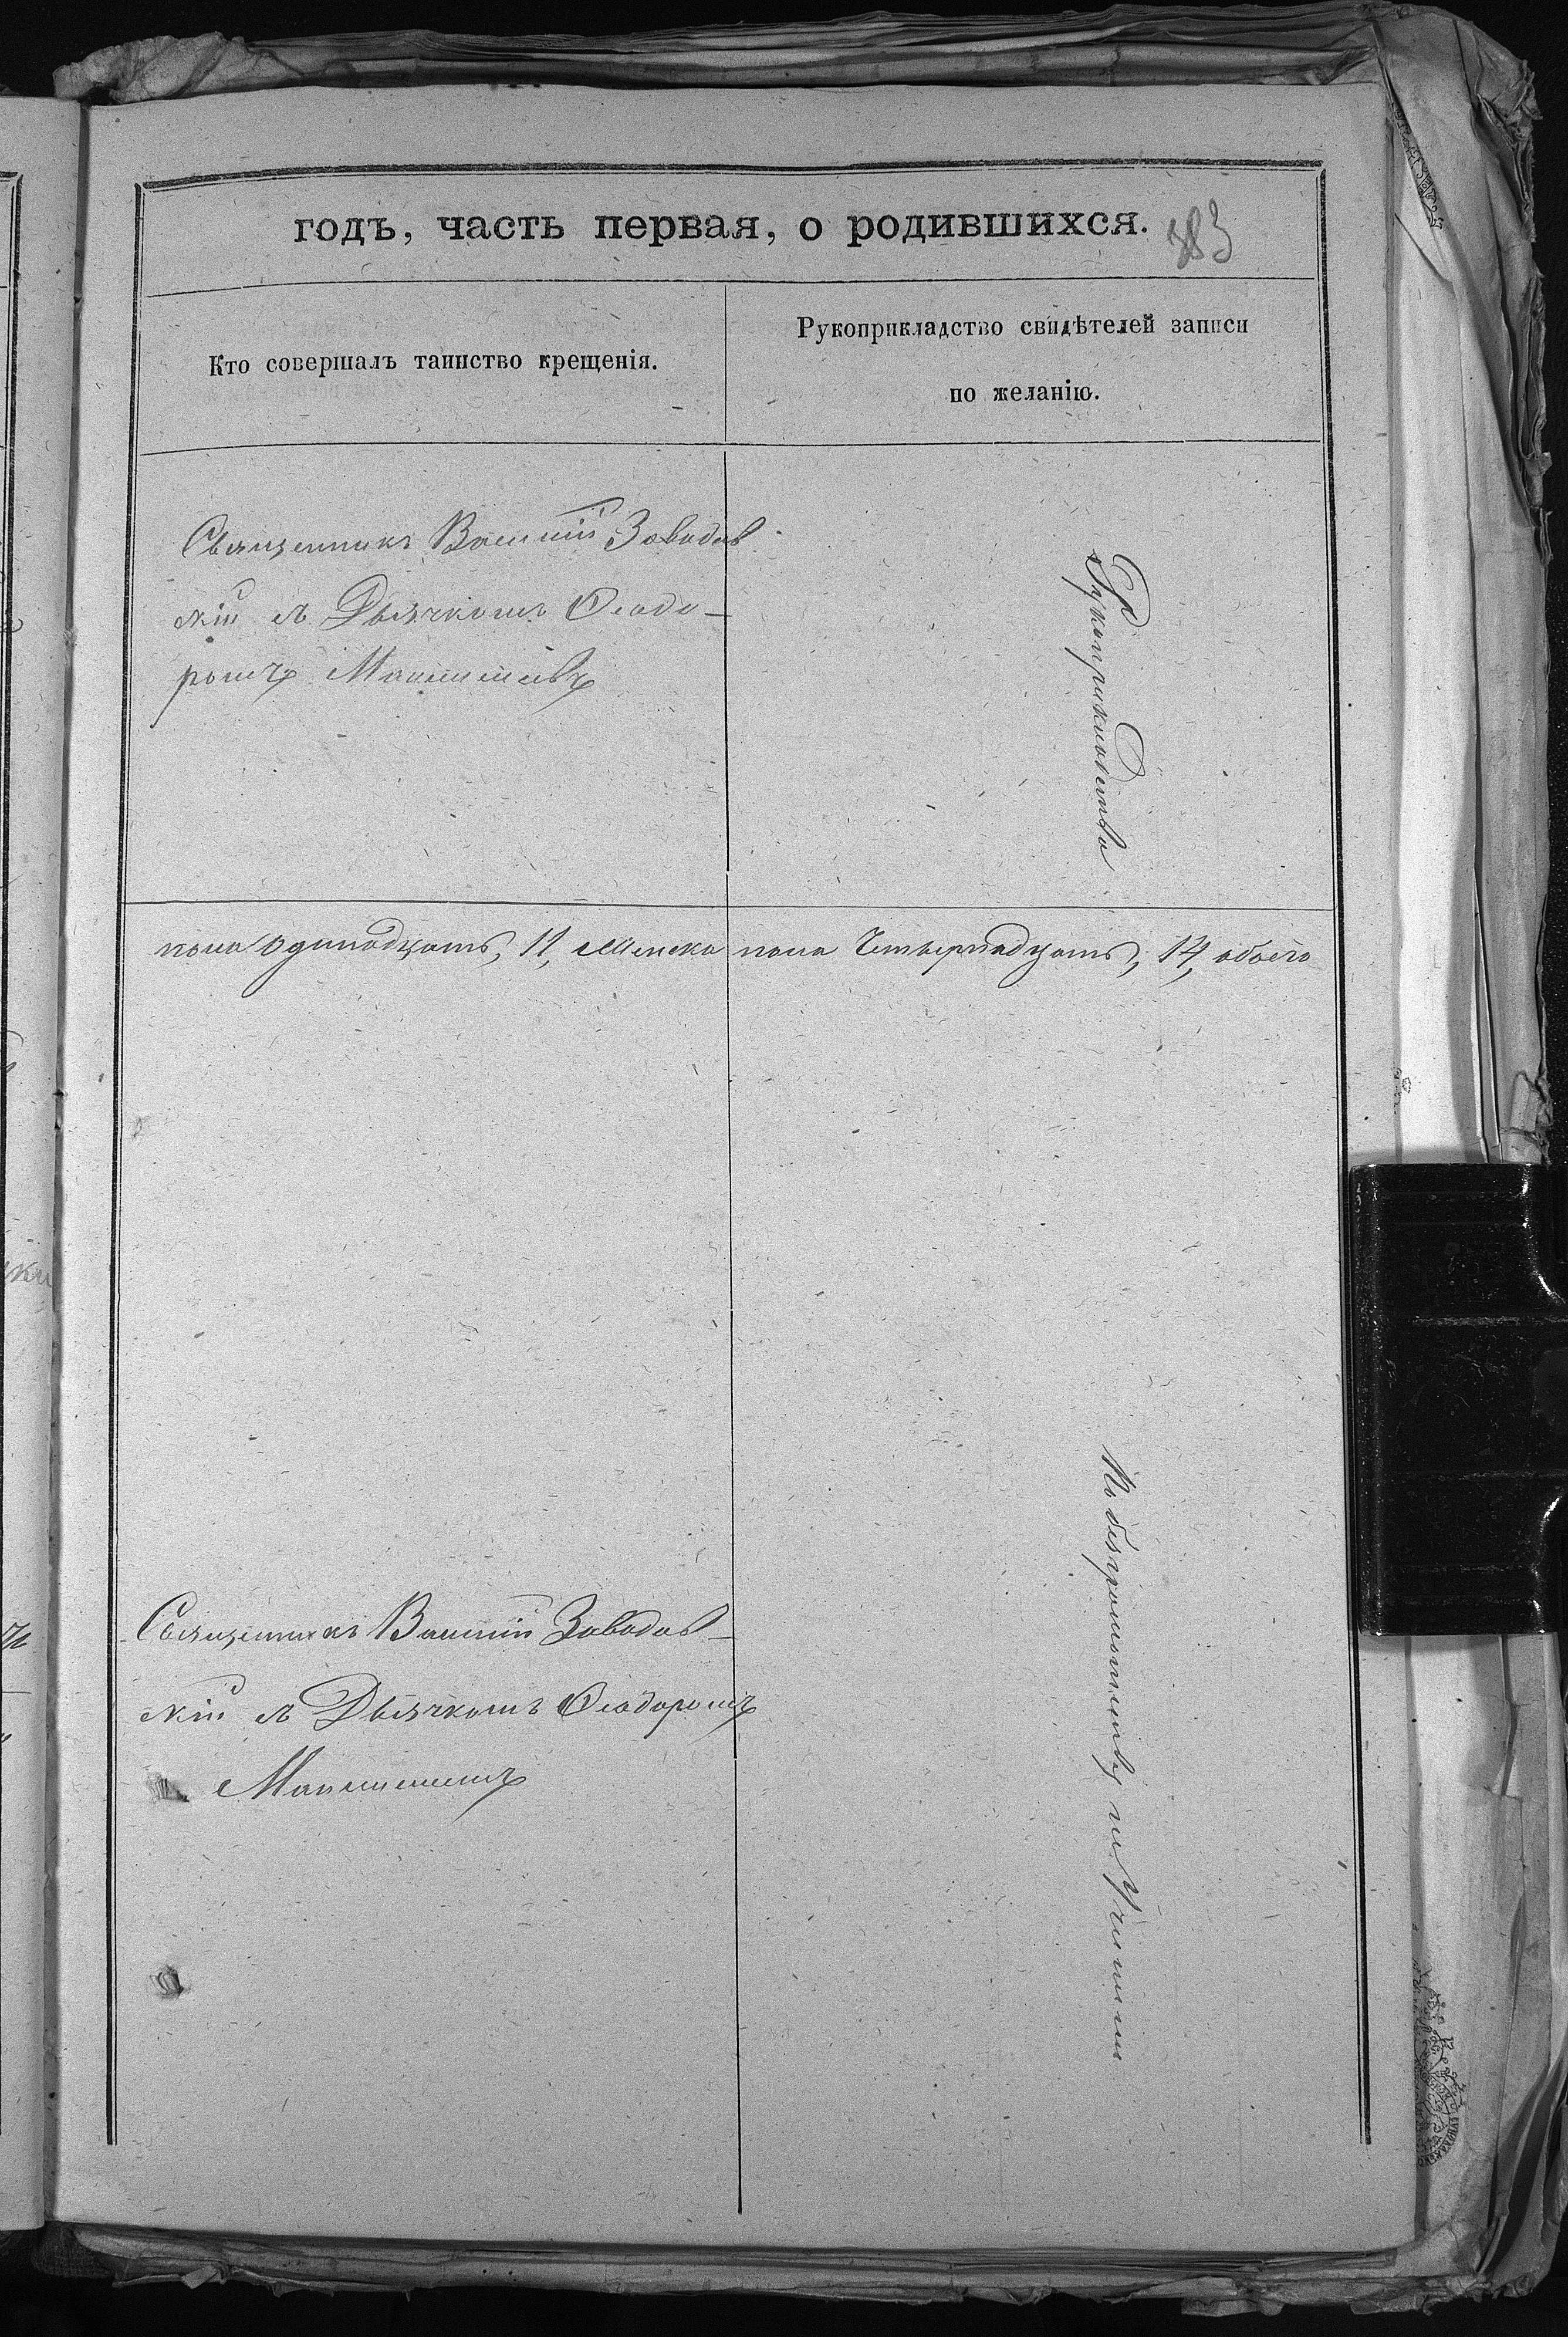 годъ, часть первая, о родившихся. 383
Кто совершалъ таинство крещенія.
Рукоприкладство свидѣтелей записи
по желанію.
Священникъ Василій Завадов
скій съ Дьячкомъ Ѳеодо-
ромъ
Рукоприкладства
пола одинадцать, 11, Женска пола Четырнадцать, 14, обоего
Священникъ Василій Завадов-
скій съ Дьячкомъ Ѳеодоромъ
По безграмотству не Учинили